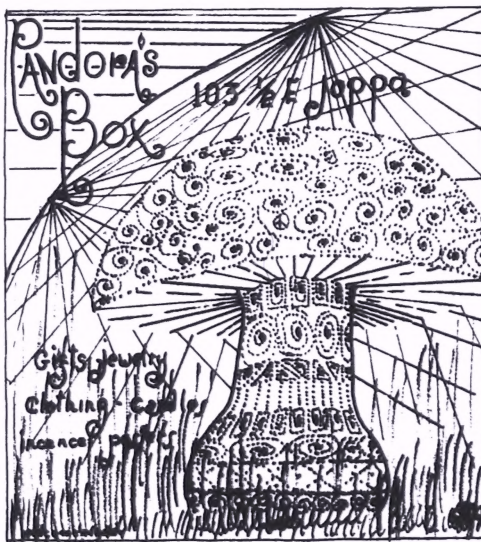 PANdORA's
Box
103 ½ E Joppa
Gifts, Jewelry
Clothing - Candles
incence